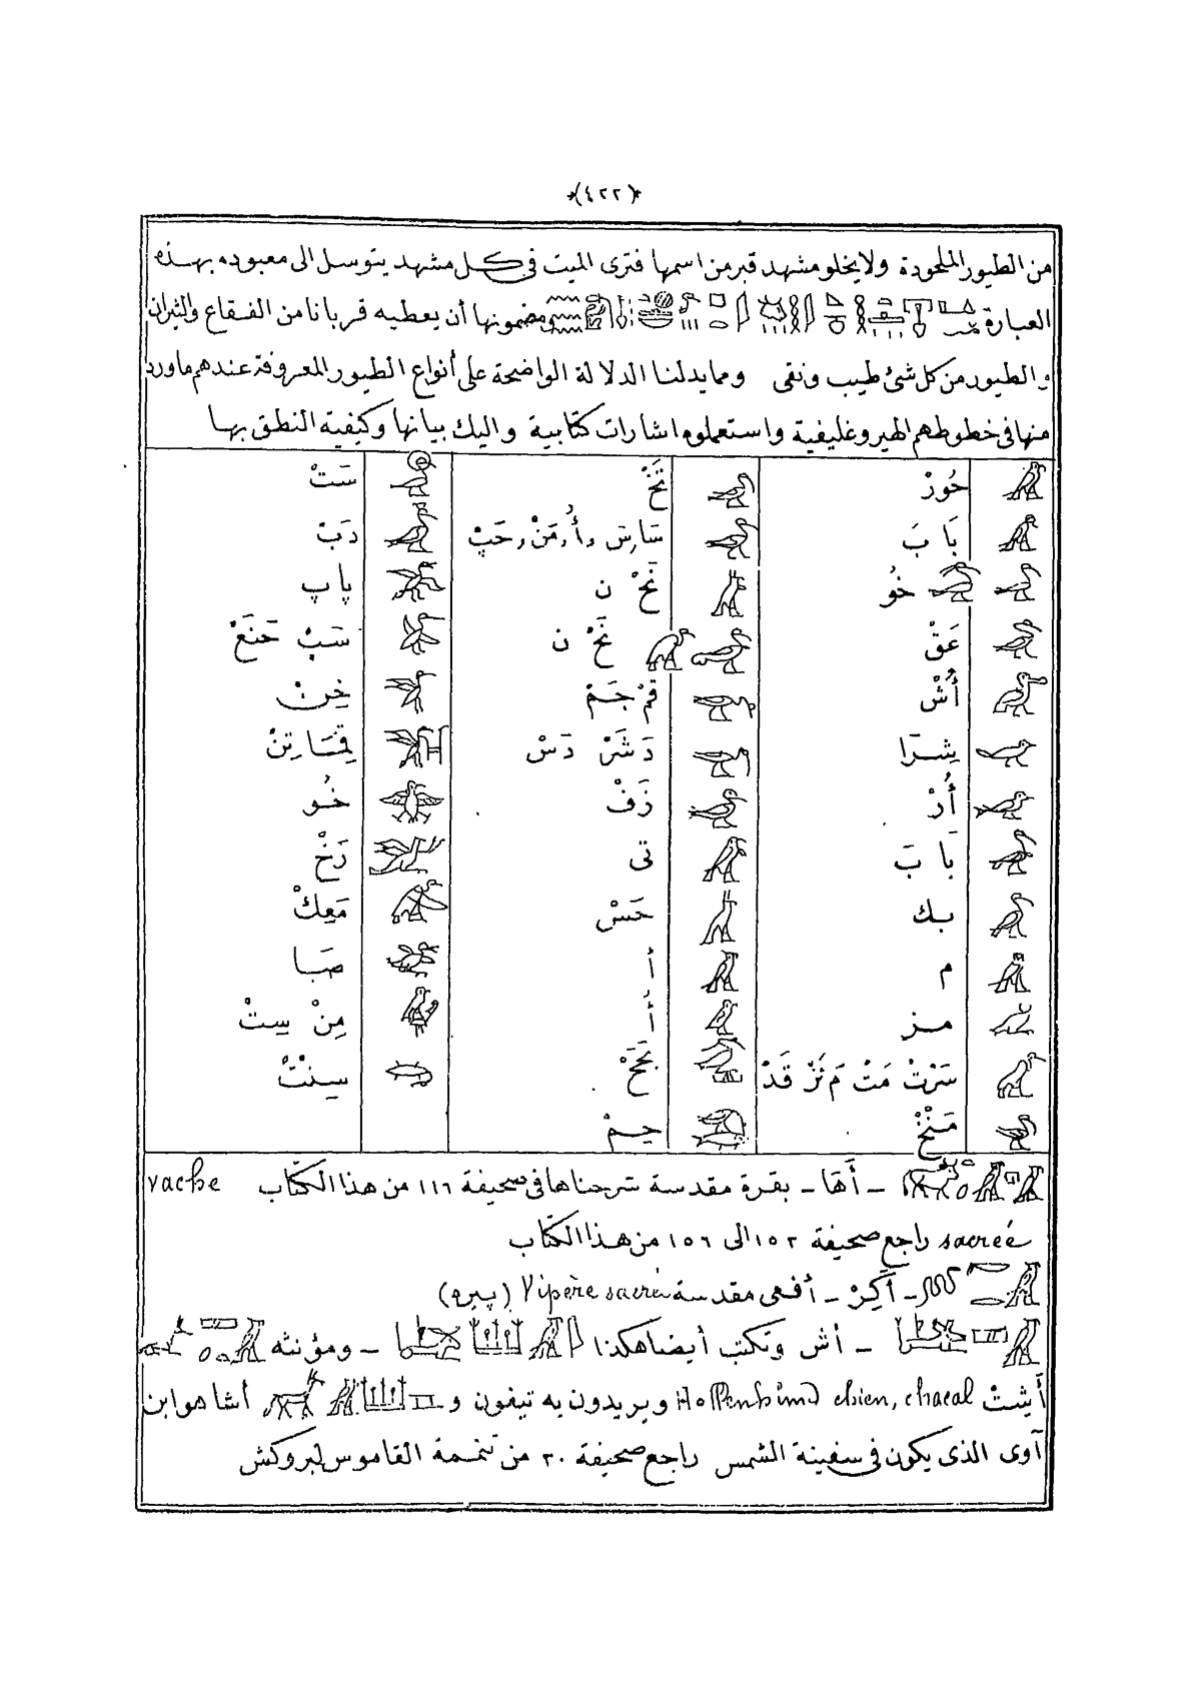 (٤٢٢)
من الطيور الملحودة ولا يخلو مشهد قبر من اسمها فترى الميت فى كل مشهد يتوسل الى معبوده بهذه
العبارة ومضمونها أن يعطيه قربانا من الفقاع والثيران
والطيور من كل شئ طيب ونقى ومما يدلنا الدلالة الواضحة على أنواع الطيور المعروفة عندهم ماورد
منها فى خطوطهم الهيروغليفية واستعملوه اشارات كتابية واليك بيانها وكيفية النطق بها
حُورْ تَخْ سَتْ
بَا بَ سَارِس رأُرمَنْ رحَپْ دَبْ
خُو نَحْ ن پاپ
عَقْ نَحْ ن سَبْ حَنَعْ
أُشْ قمْ جَمْ
يِشرَا دَشَرْ دَسْ
أُرْ زَفْ خُو
بَا بَ تى رَخْ
بك حَسْ مَعِكْ
م أ صَبا
مز أُ مِنْ سِتْ
سَرْتْ مَتْ مَ نَرْ قَدْ سِنْتْ
مَنْخْ جِمْ
ـ أَهَا ـ بقرة مقدسة شرحناها فى صحيفة ١١٦ من هذا الكتاب vache
sacrée راجع صحيفة ١٥٢ الى ١٥٦ من هذا الكتاب
ـ أَكِرْ ـ أفعى مقدسة Vipère sacrée (پيره)
ـ أش وتكتب أيضا هكذا ـ ومؤنثه
أَشِتْ Höllenhund chien, chacal ويريدون به تيفون و أشا هو ابن
آوى الذى يكون فى سفينة الشمس راجع صحيفة ٣٠ من تتمة القاموس لبروكش